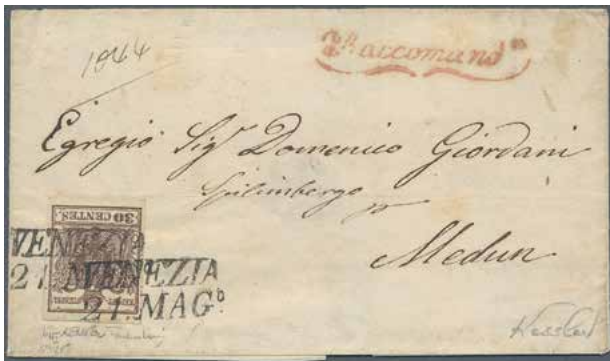 1044
Raccomand^a
Egregio Sig^r Domenico Giordani
Spilimbergo
p^r
Medun
30 CENTES.
VENEZIA
21. VENEZIA
21. MAG^o
Kessler